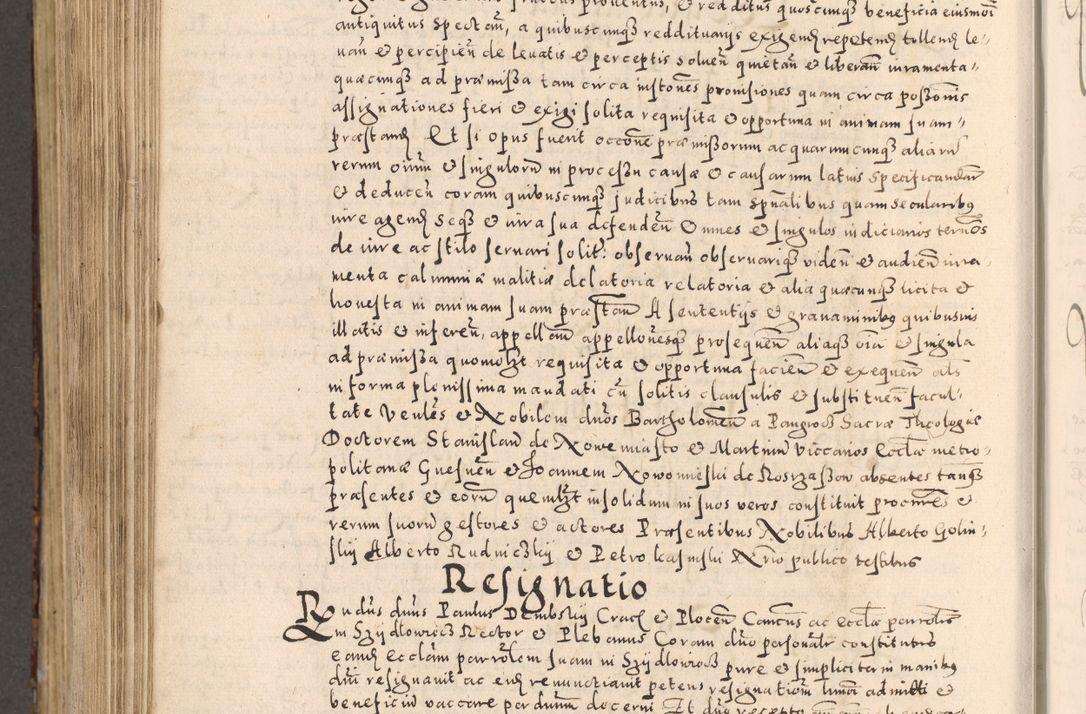 antiquitus spectan̄, a quibuscunqȝ reddituarijs exigend repetend tollend le-
uan̄ e percipien̄ de leuatis e perceptis soluen̄ quietan̄ e liberan̄ iuramenta
quæcunqȝ ad præmissa tam circa instones prouisiones quam circa possonis
assignationes fieri e exigi solita requisita e opportuna in animam suam
præstand Et si opus fuerit occone præmissorum ac quarumcunqȝ aliarū
rerum oīum e singulorū in processu causæ e causarum latius specificandar̄
e deducen̄ coram quibuscunqȝ judicibus tam spn̄alibus quam secularibȝ
iure agend seqȝ e iura sua defenden̄ Omnes e singulos iudiciarios termōs
de iure ac stilo seruari solit: obseruan̄ obseruariqȝ viden̄ e audien̄ iura-
menta calumniæ malitiæ delatoria relatoria e alia quæcunqȝ licita e
honesta in animam suam præstan̄ A sententijs e grauaminibȝ quibusuis
illatis e inferen̄, appellan̄ appellonesqȝ prosequen̄ aliaqȝ oīa e singula
ad præmissa quomolȝt requisita e opportuna facien̄ e exequen̄ als
in forma plenissima mandati cū solitis clausulis e substituen̄ facul-
tate Venles e Nobilem dnos Bartholomeū a Sacræ Theologiæ
Doctorem Stanislaū de Nowe miasto e Martinū viccarios Eccl̄æ metro-
politanæ Gnesnen̄ e Joannem Nowomieski de absentes tanqȝ
præsentes e eorū quemlȝt insolidum in suos veros constituit procures e
rerum suorū gestores e actores Præsentibus Nobilibus Alberto Golin-
skij Alberto Rudniczkij e Petro Kasinski Nrio publico testibus
Resignatio
Rndus dnus Paulus Dembskij Crac e Plocen̄ Cancus ac eccl̄æ parrolis
in Szijdlowiecz Rector e Plebanus Coram dno personalr constitutus
eand ecclam parrolem suam in Szijdlowiecz pure e simpliciter in manibȝ
dni resignauit ac eid renunctiauit petens resignationem admitti e
beneficiū vaccare per dnum decerni Et dno